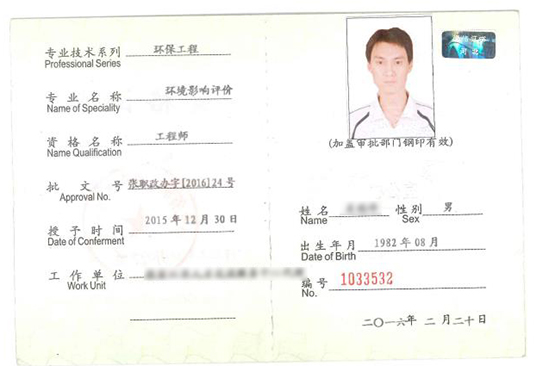 专业技术系列 环保工程
Professional Series
专业名称 环境影响评价
Name of Speciality
资格名称 工程师
Name Qualification
批文号 张职政办字[2016]24号
Approval No.
授予时间 2015年12月30日
Date of Conferment
工作单位
Work Unit
(加盖审批部门钢印有效)
姓名 性别 男
Name Sex
出生年月 1982年08月
Date of Birth
编号 1033532
No.
二〇一六年二月二十日